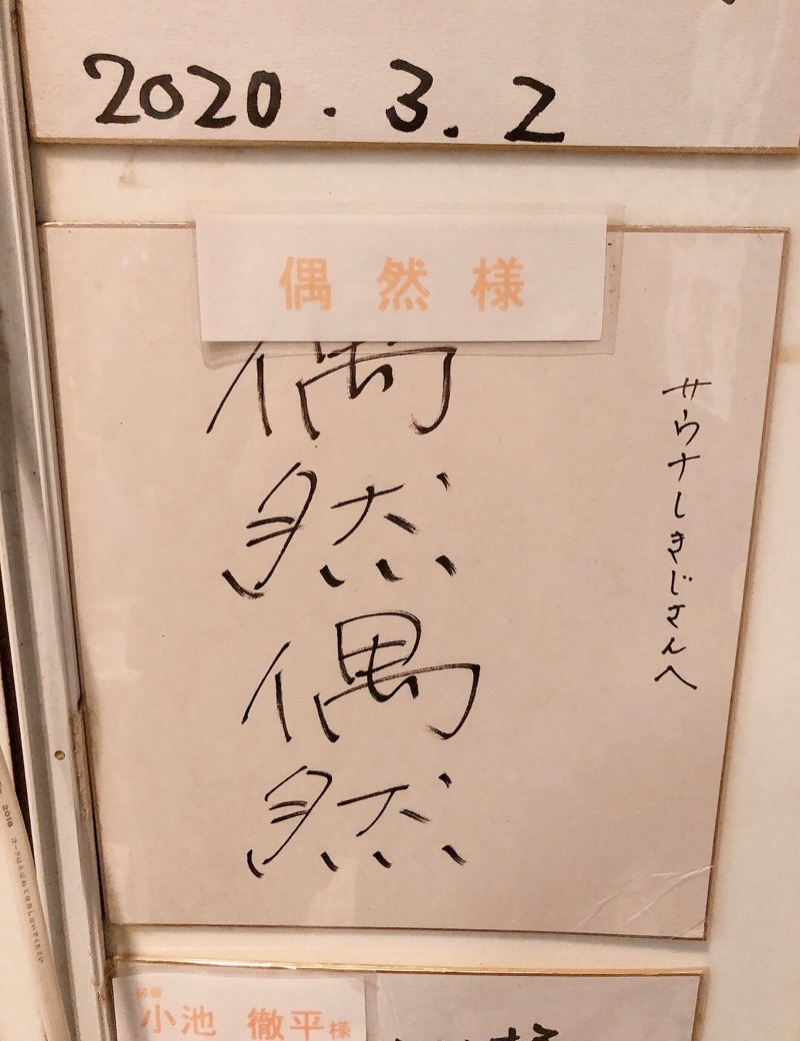 2020.3.2
偶然様
偶然偶然
サウナしきじさんへ
俳優
小池 徹平様